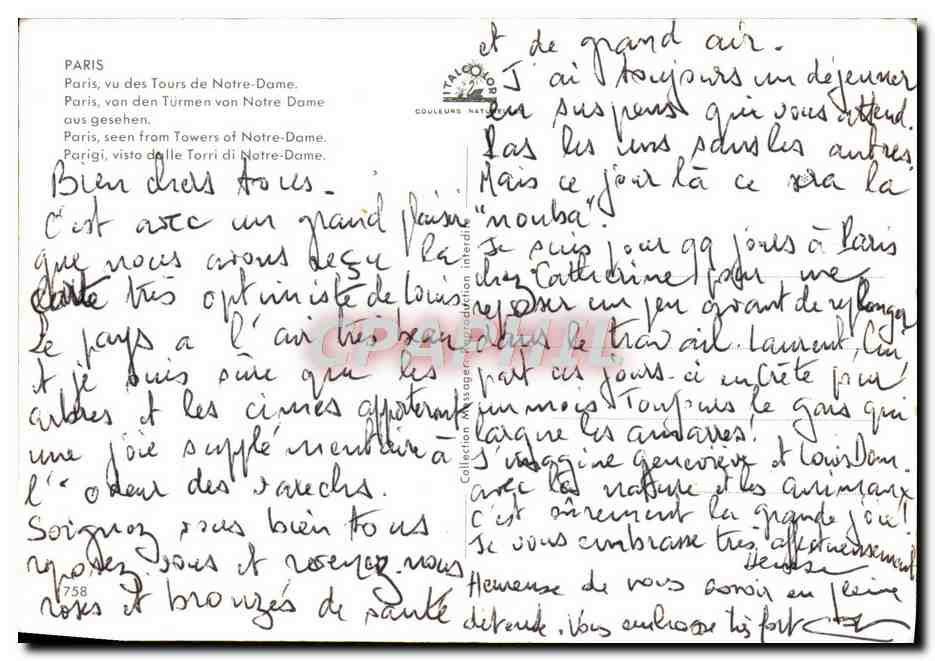 PARIS
Paris, vu des Tours de Notre-Dame.
Paris, von den Türmen von Notre Dame
aus gesehen.
Paris, seen from Towers of Notre-Dame.
Parigi, visto dalle Torri di Notre-Dame.
Bien chers tous.
C'est avec un grand plaisir
que nous avons reçu la
carte très optimiste de Louis
Le pays a l'air très beau
et je suis sûre que les
arbres et les cimes apporteront
une joie supplémentaire à
l'odeur des
Soignez vous bien tous
reposez vous et revenez-nous
roses et bronzés de santé
758
ITALCOLOR
COULEURS NATURELLES
Collection Messager - Reproduction interdite
CPAPHIL
et de grand air.
J'ai toujours un déjeuner
en suspens qui vous attend.
Pas les uns sans les autres
Mais ce jour là ce sera la
"nouba".
Je suis pour 99 jours à Paris
chez Catherine pour me
reposer un peu avant de replonger
dans le travail. Laurent, lui,
part ces jours-ci en Crète pour
un mois. Toujours le gars qui
largue les amarres!
J'imagine Geneviève et Louis Dom.
avec la nature et les animaux
c'est sûrement la grande joie!
Je vous embrasse très affectueusement
Heureuse de vous savoir en pleine
détente. Vous embrasse très fort